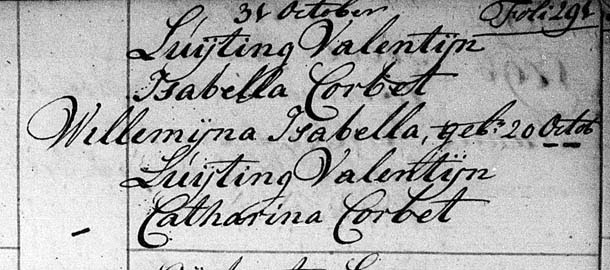 31 October Foli 291
Luijting Valentijn
Isabella Corbet
Willemijna Isabella, geb: 20 Octob
Luijting Valentijn
Catharina Corbet